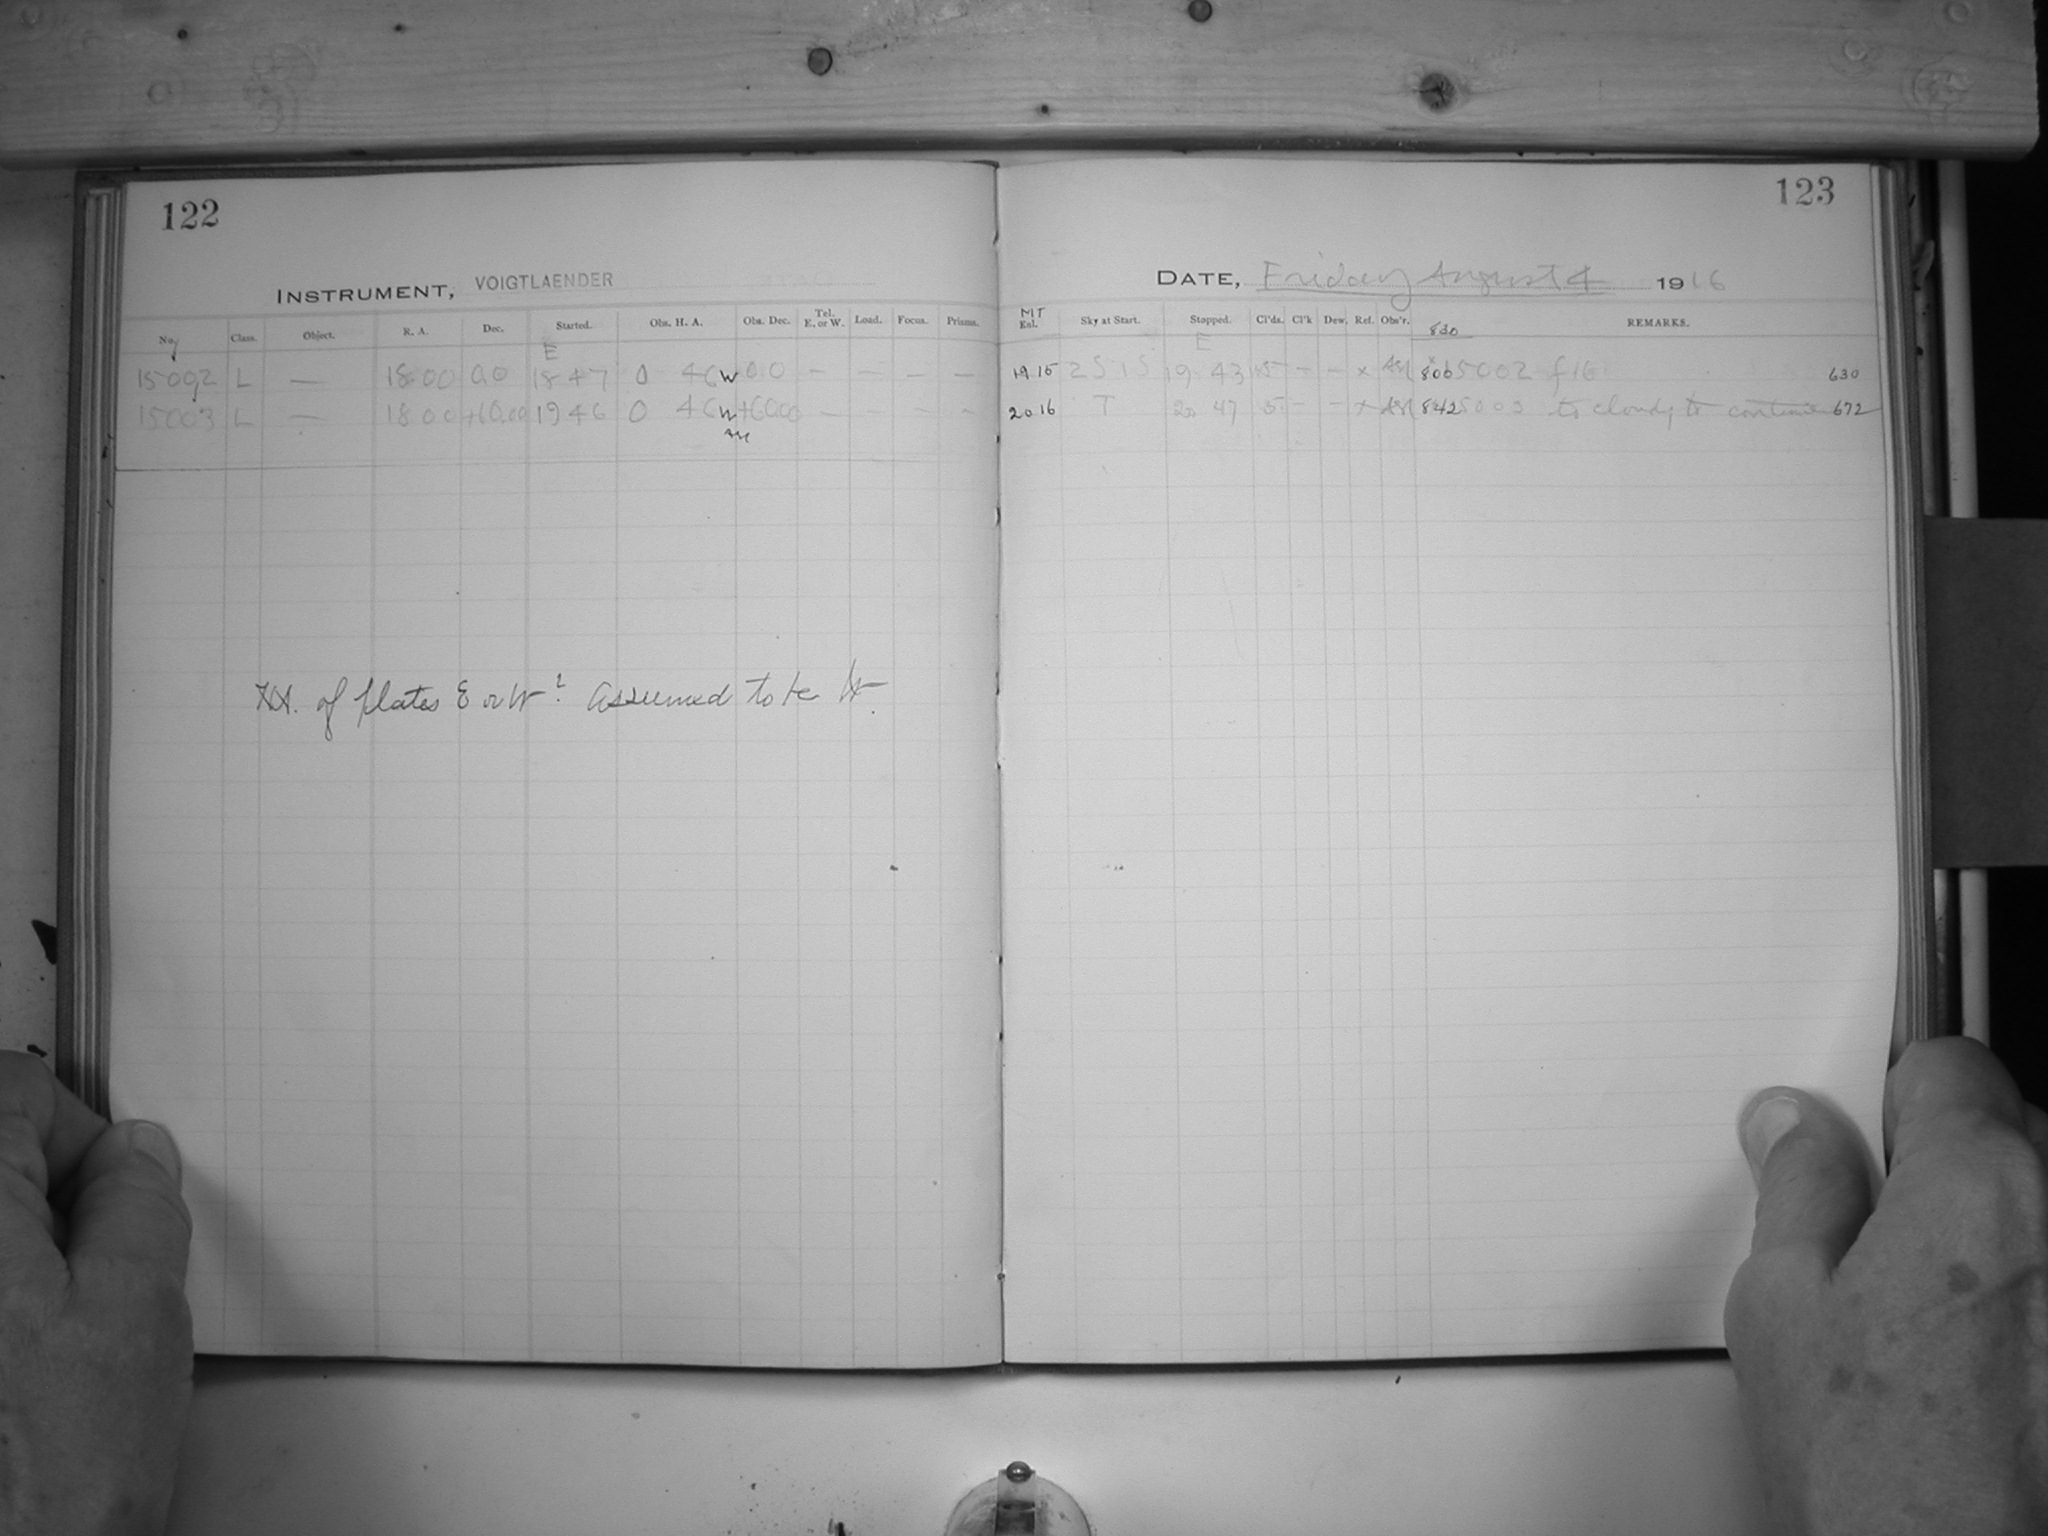 122
INSTRUMENT, VOIGTLAENDER
No. Class. Object. R. A. Dec. Started. Obs. H. A. Obs. Dec. Tel. E. or W. Load. Focus. Prisms.
E
15002 L — 18 00 0.0 18 47 0 46 W 0.0 — — — —
15003 L — 18 00 +60.00 19 46 0 46 W +60.00 — — — -
H.A. of plates E or W? Assumed to be W.
123
DATE, Friday August 4 1916
MT
Exl. Sky at Start. Stopped. Cl'ds. Cl'k Dew. Ref. Obs'r. 830 REMARKS.
E
19 15 2515 19 43 — — x 806 5002 f 16 630
20 16 T 20 47 5 — — x 842 5003 to cloudy to continue 672